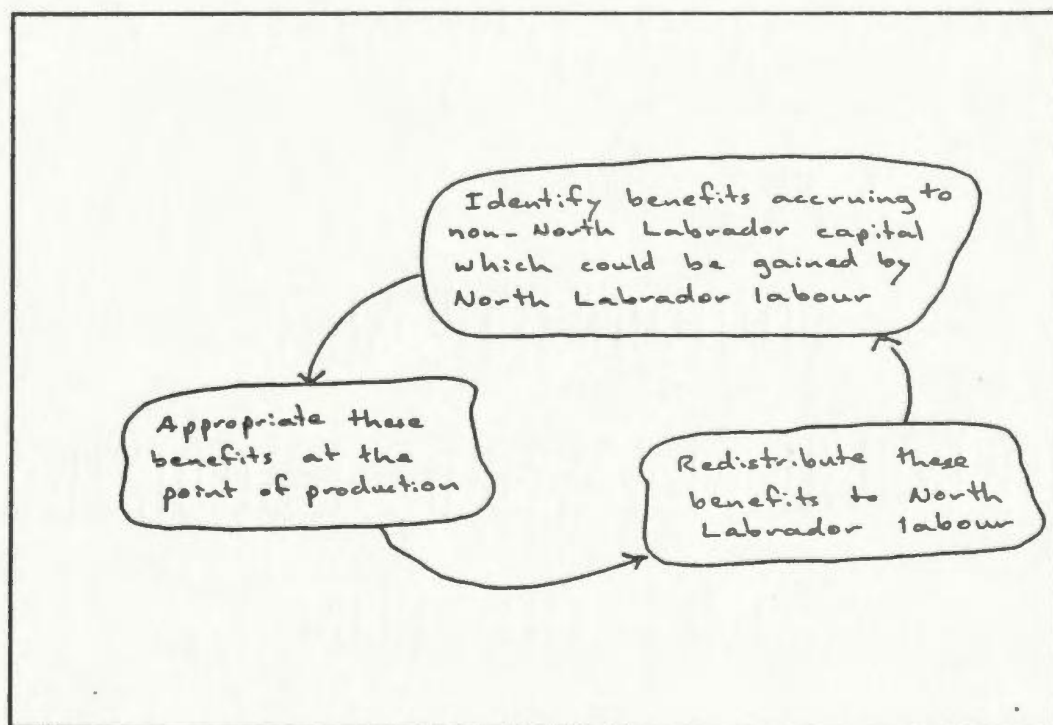 Identify benefits accruing to
non-North Labrador capital
which could be gained by
North Labrador labour
Appropriate these
benefits at the
point of production
Redistribute these
benefits to North
Labrador labour